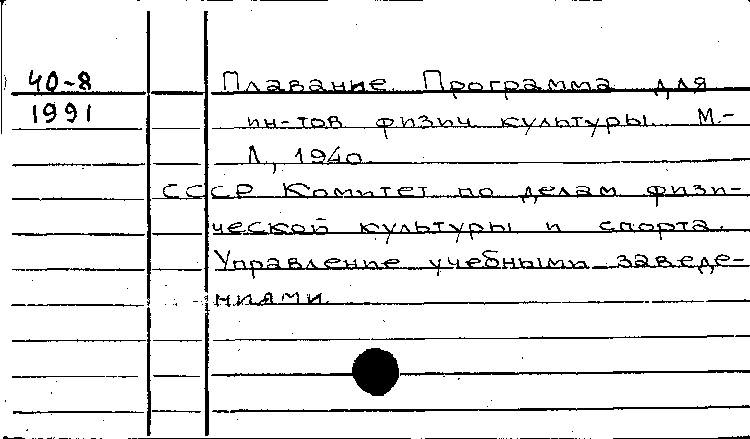 40-8
1991
Плавание Программа для
ин-тов физич. культуры. М.-
Л., 1940.
СССР Комитет по делам физи-
ческой культуры и спорта.
Управление учебными заведе-
ниями.